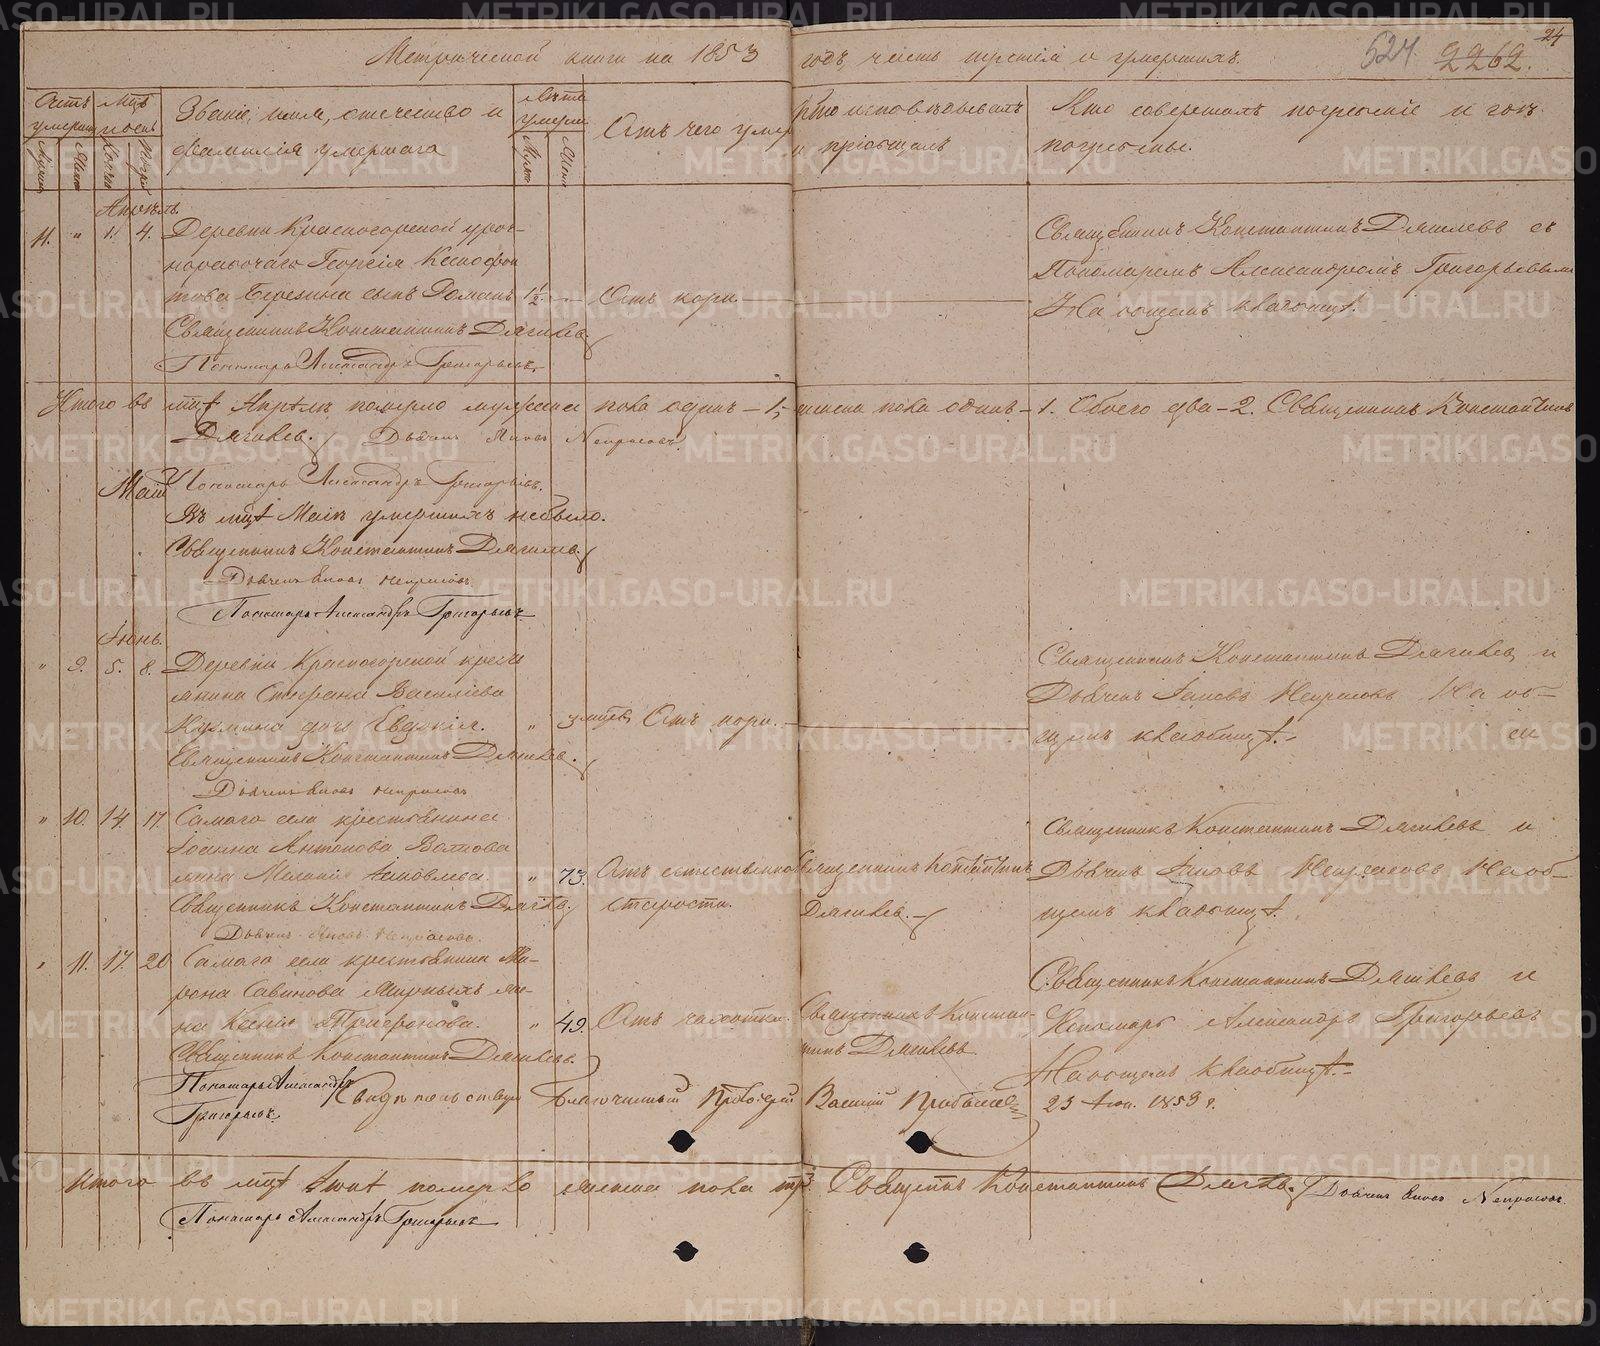 Метрической книги на 1853 годъ, часть третія и умершихъ. 524 2262. 24
Счетъ умерш.
Мцъ и день
Званіе, имя, отчество и фамилія умершаго
Лѣта умерш.
Отъ чего умеръ
Кто исповѣдывалъ и пріобщалъ
Кто совершалъ погребеніе и гдѣ погребены.
Апрѣль
11. " 1. 4. Деревни Красногорской уроч-
норабочаго Георгія Ксенофон
това Березина сынъ Романъ 1½ — Отъ кори.
Священникъ Константинъ Дягилевъ
Пономарь Александръ Григорьевъ.
Священникъ Константинъ Дягилевъ съ
Пономаремъ Александромъ Григорьевым
На общемъ кладбищѣ.
Итого въ мцѣ Апрѣлѣ померло мужеска пола одинъ – 1, женска пола одинъ – 1. Обоего два – 2. Священникъ Константинъ
Дягилевъ. Дьячекъ Яковъ Некрасовъ
Пономарь Александръ Григорьевъ.
Май
Въ мцѣ Маѣ умершихъ небыло.
Священникъ Константинъ Дягилевъ
Дьячекъ Яковъ Некрасовъ
Пономарь Александръ Григорьевъ
Іюнь.
" 9. 5. 8. Деревни Красногорской кресть
янина Стефана Васильева
Кузмина дочь Евдокія. " 3 мцев Отъ кори.
Священникъ Константинъ Дягилевъ.
Дьячекъ Яковъ Некрасовъ
Священникъ Константинъ Дягилевъ и
Дьячекъ Іаковъ Некрасовъ На об-
щемъ кладбищѣ.
" 10. 14. 17. Самаго села крестьянина
Іоанна Антонова
жена Меланія Іаковлева. " 73. Отъ естественной
старости.
Священникъ Константинъ
Дягилевъ.
Священникъ Константинъ Дягилевъ
Дьячекъ Яковъ Некрасовъ.
Священникъ Константинъ Дягилевъ и
Дьячекъ Іаковъ Некрасовъ На об-
щемъ кладбищѣ.
" 11. 17. 20 Самаго села крестьянина Ми-
рона Савинова Мирныхъ же-
на Ксенія Трифонова. " 49. Отъ чахотки.
Священникъ Констан-
тинъ Дягилевъ
Священникъ Константинъ Дягилевъ.
Пономарь Александръ
Григорьевъ.
Священникъ Константинъ Дягилевъ и
Пономарь Александръ Григорьевъ
На общемъ кладбищѣ.
Свидѣтельствую Благочинный Василій 23 Іюн. 1853 г.
Итого въ мцѣ Іюнѣ померло женска пола три. Священникъ Константинъ Дягилевъ. Дьячекъ Яковъ Некрасовъ.
Пономарь Александръ Григорьевъ
METRIKI.GASO-URAL.RU